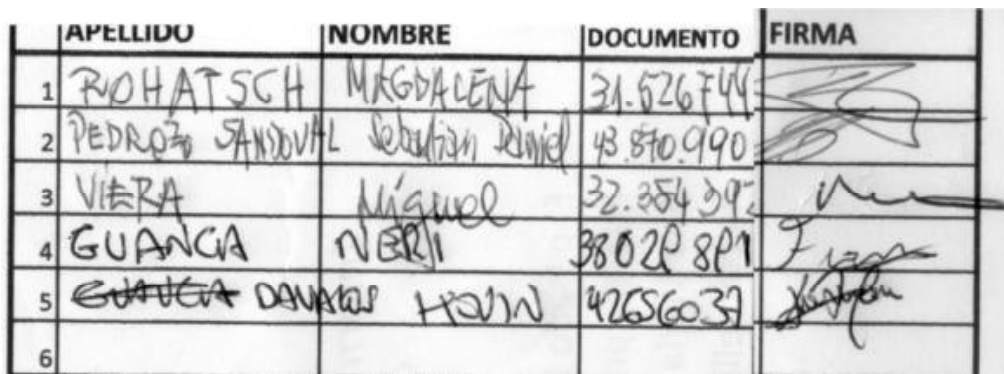 APELLIDO NOMBRE DOCUMENTO FIRMA
1 ROHATSCH MAGDALENA 31.526744
2 PEDROZO SANDOVAL Sebastian Daniel 43.870.990
3 VIERA Miguel 32.354.392
4 GUANCA NERJI
5 42656037
6